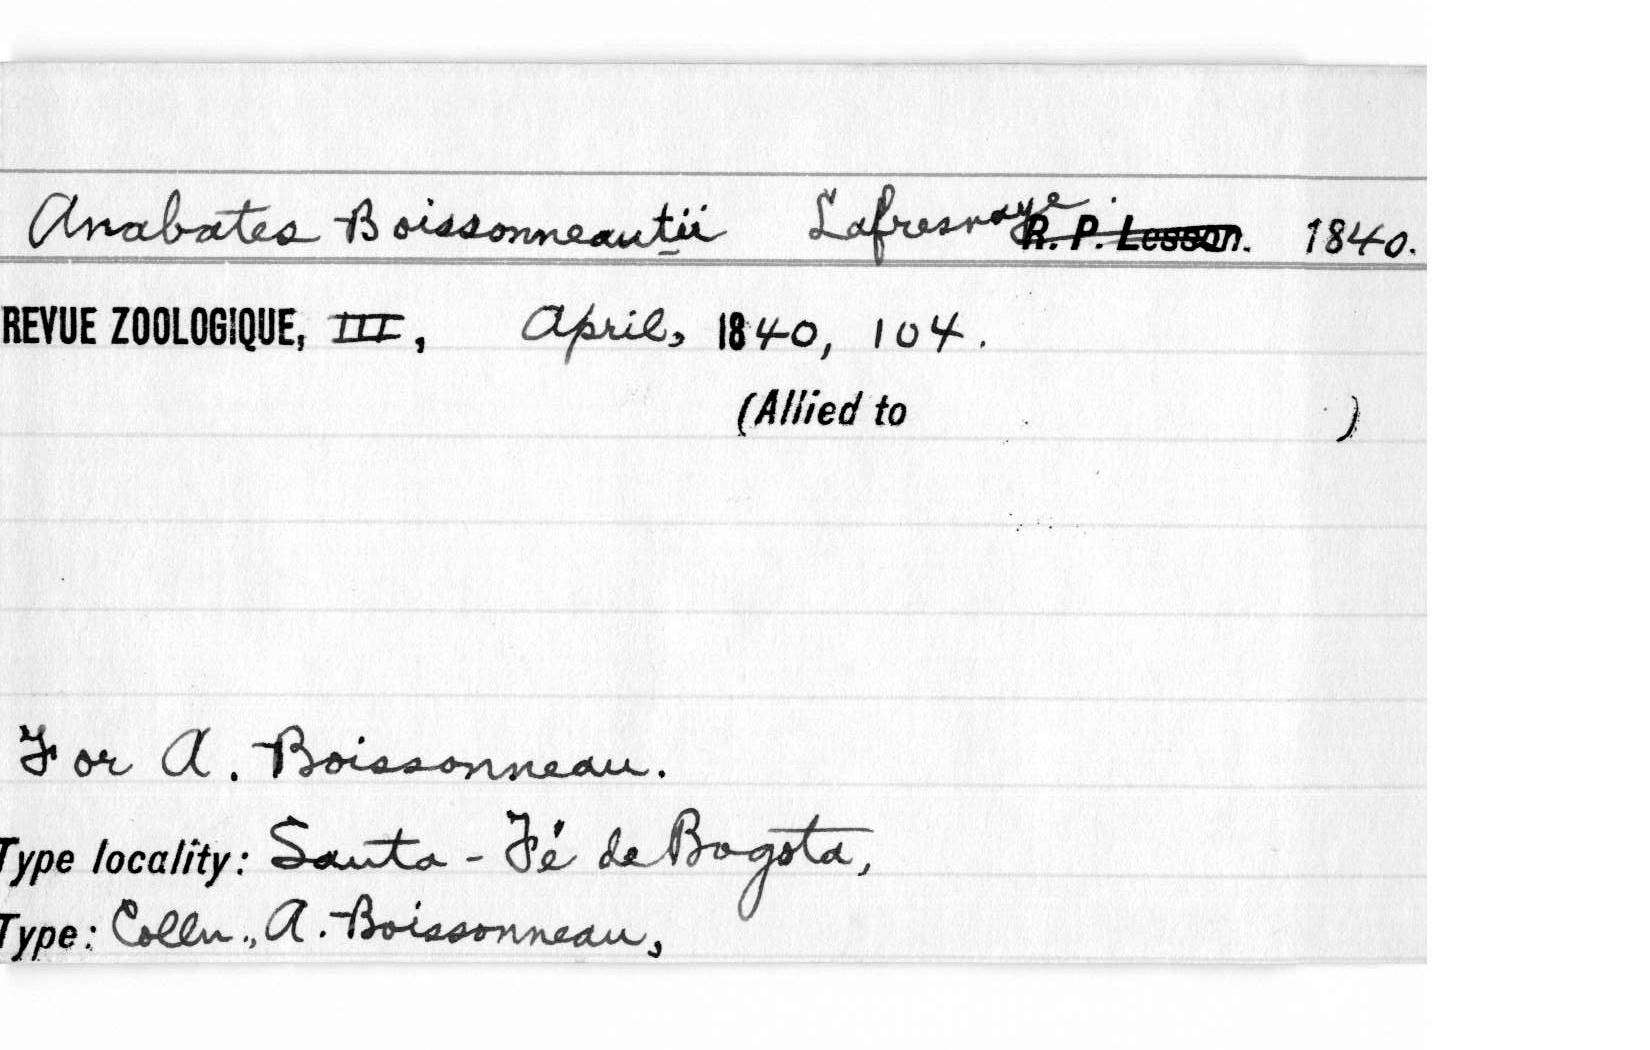 Anabates Boissonneautii Lafresnaye. R. P. Lesson. 1840.
REVUE ZOOLOGIQUE, III, April, 1840, 104.
(Allied to )
For A. Boissonneau.
Type locality: Santa-Fé de Bogota,
Type: Colln., A. Boissonneau,